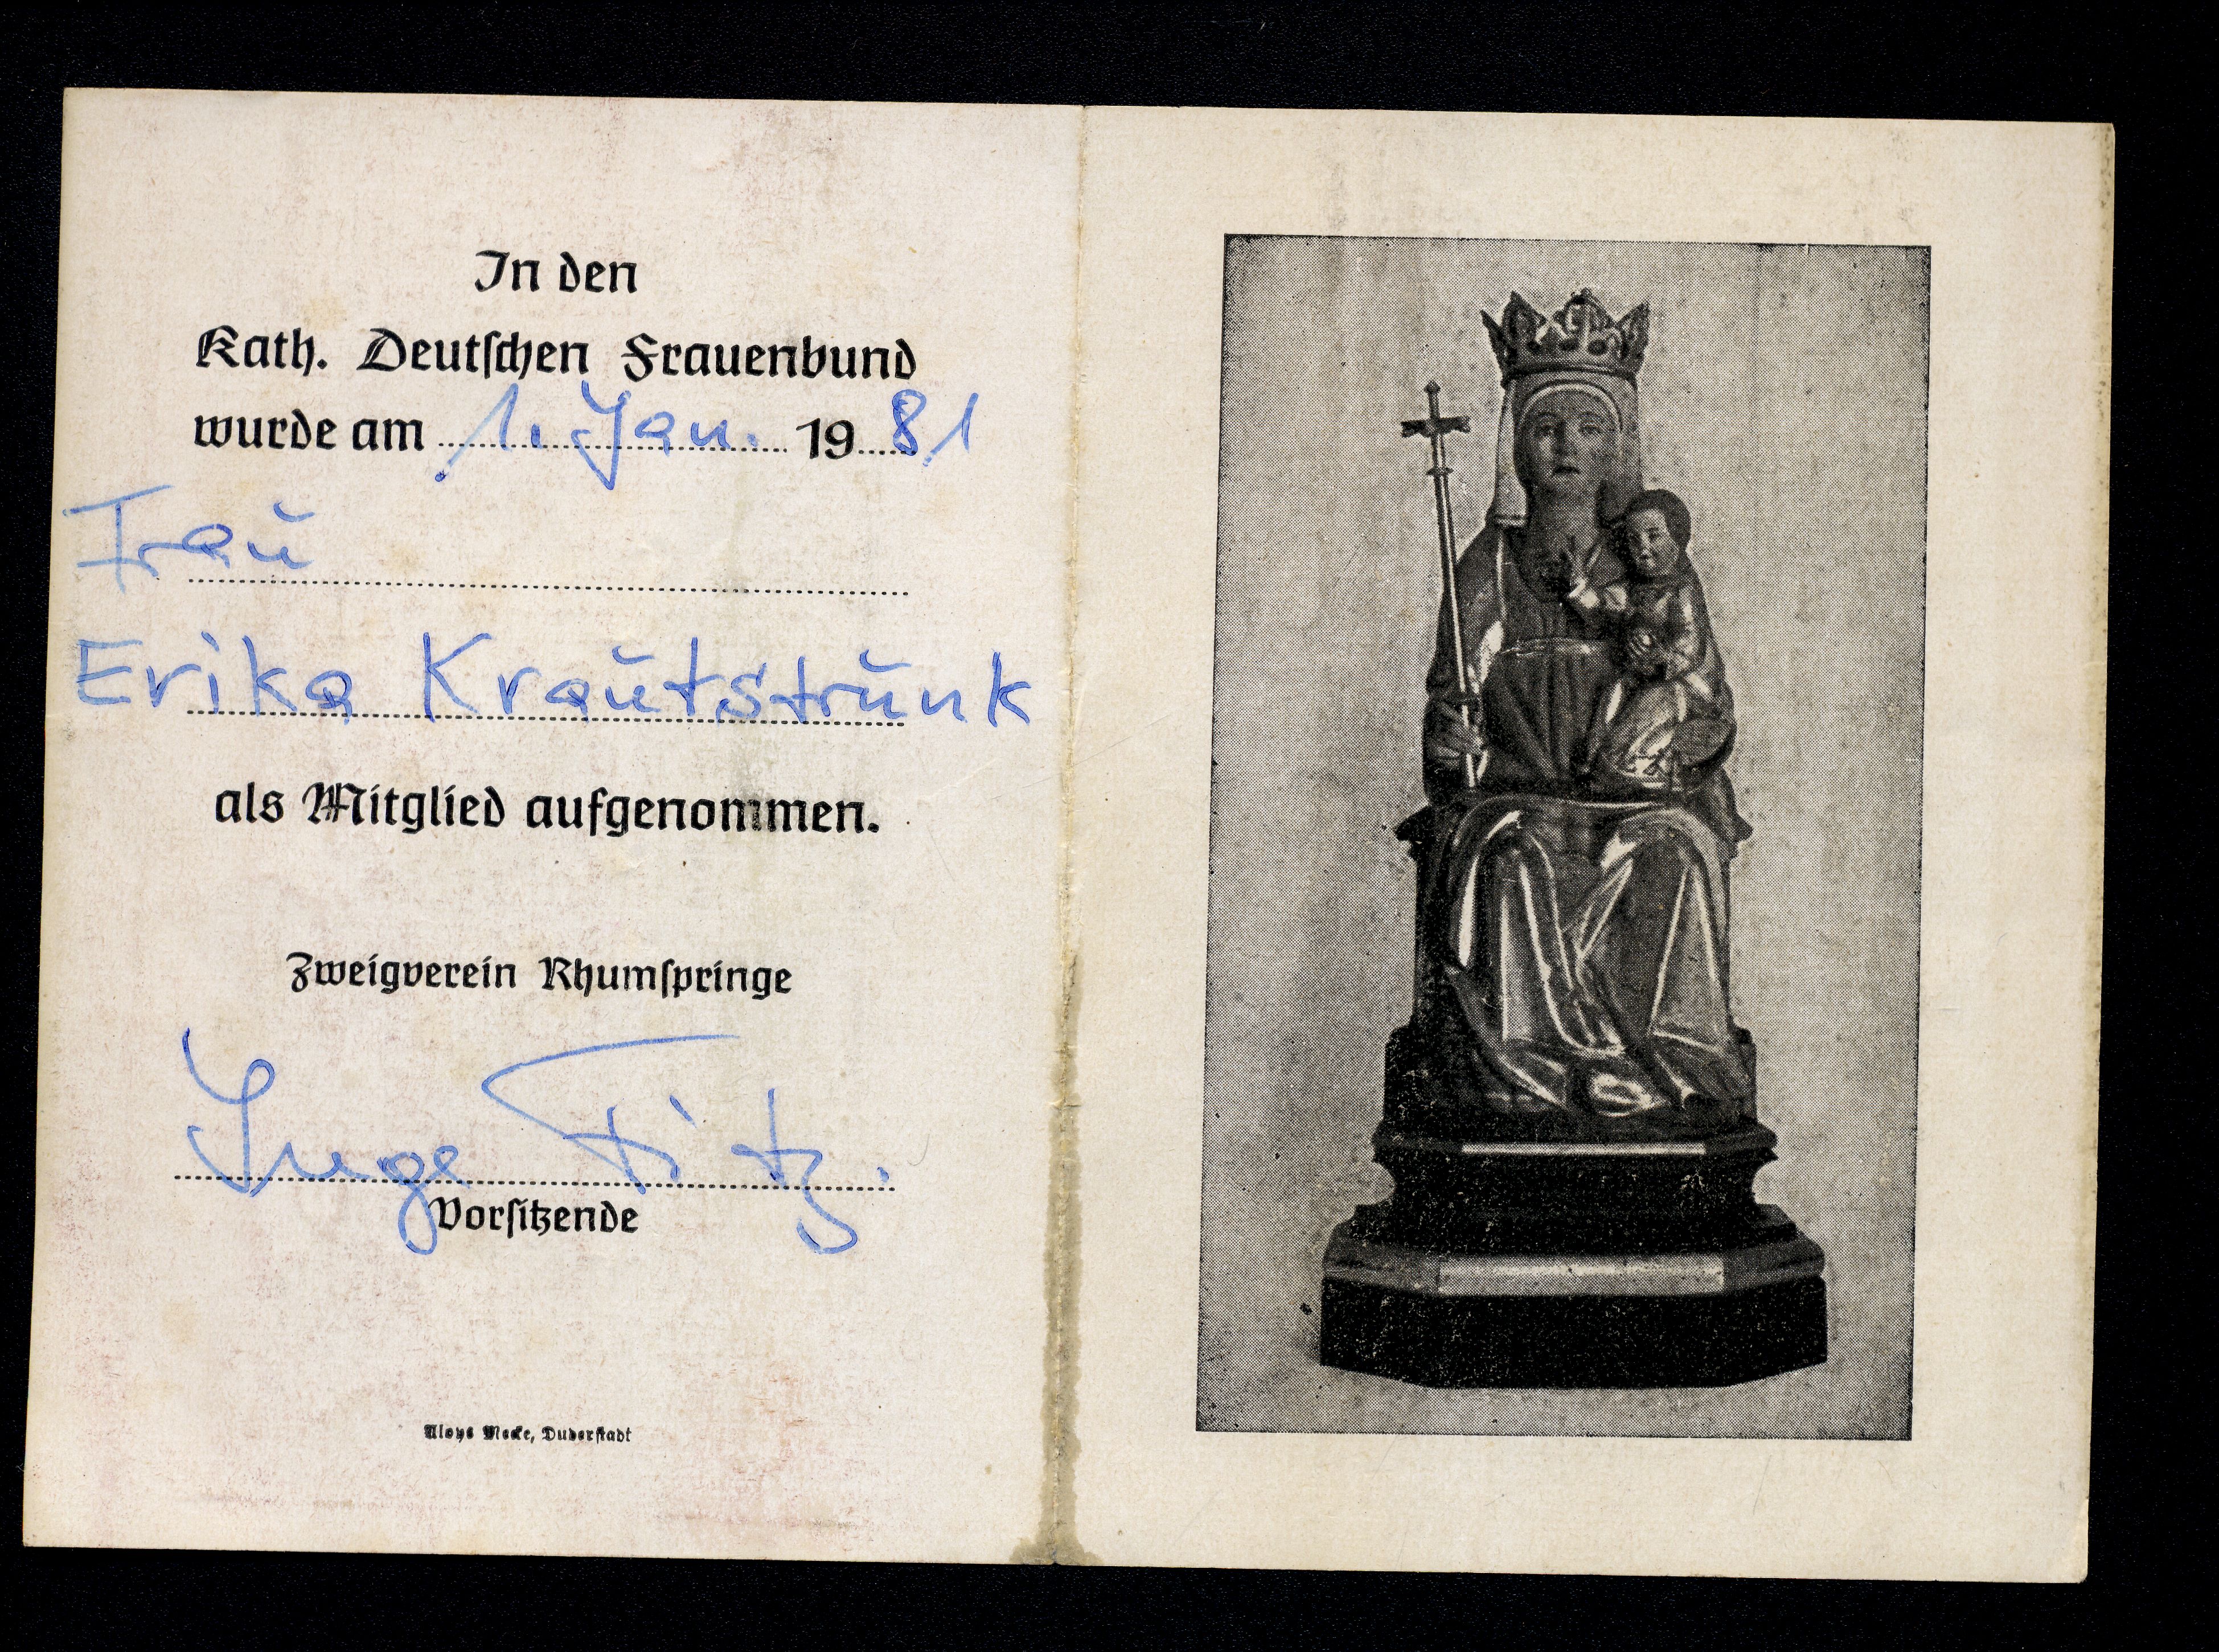 In den
Kath. Deutſchen Frauenbund
wurde am 1. Jan. 1981
Frau
Erika Krautstrunk
als Mitglied aufgenommen.
Zweigverein Rhumſpringe
Inge Fitz.
Vorſitzende
Aloys Mecke, Duderſtadt